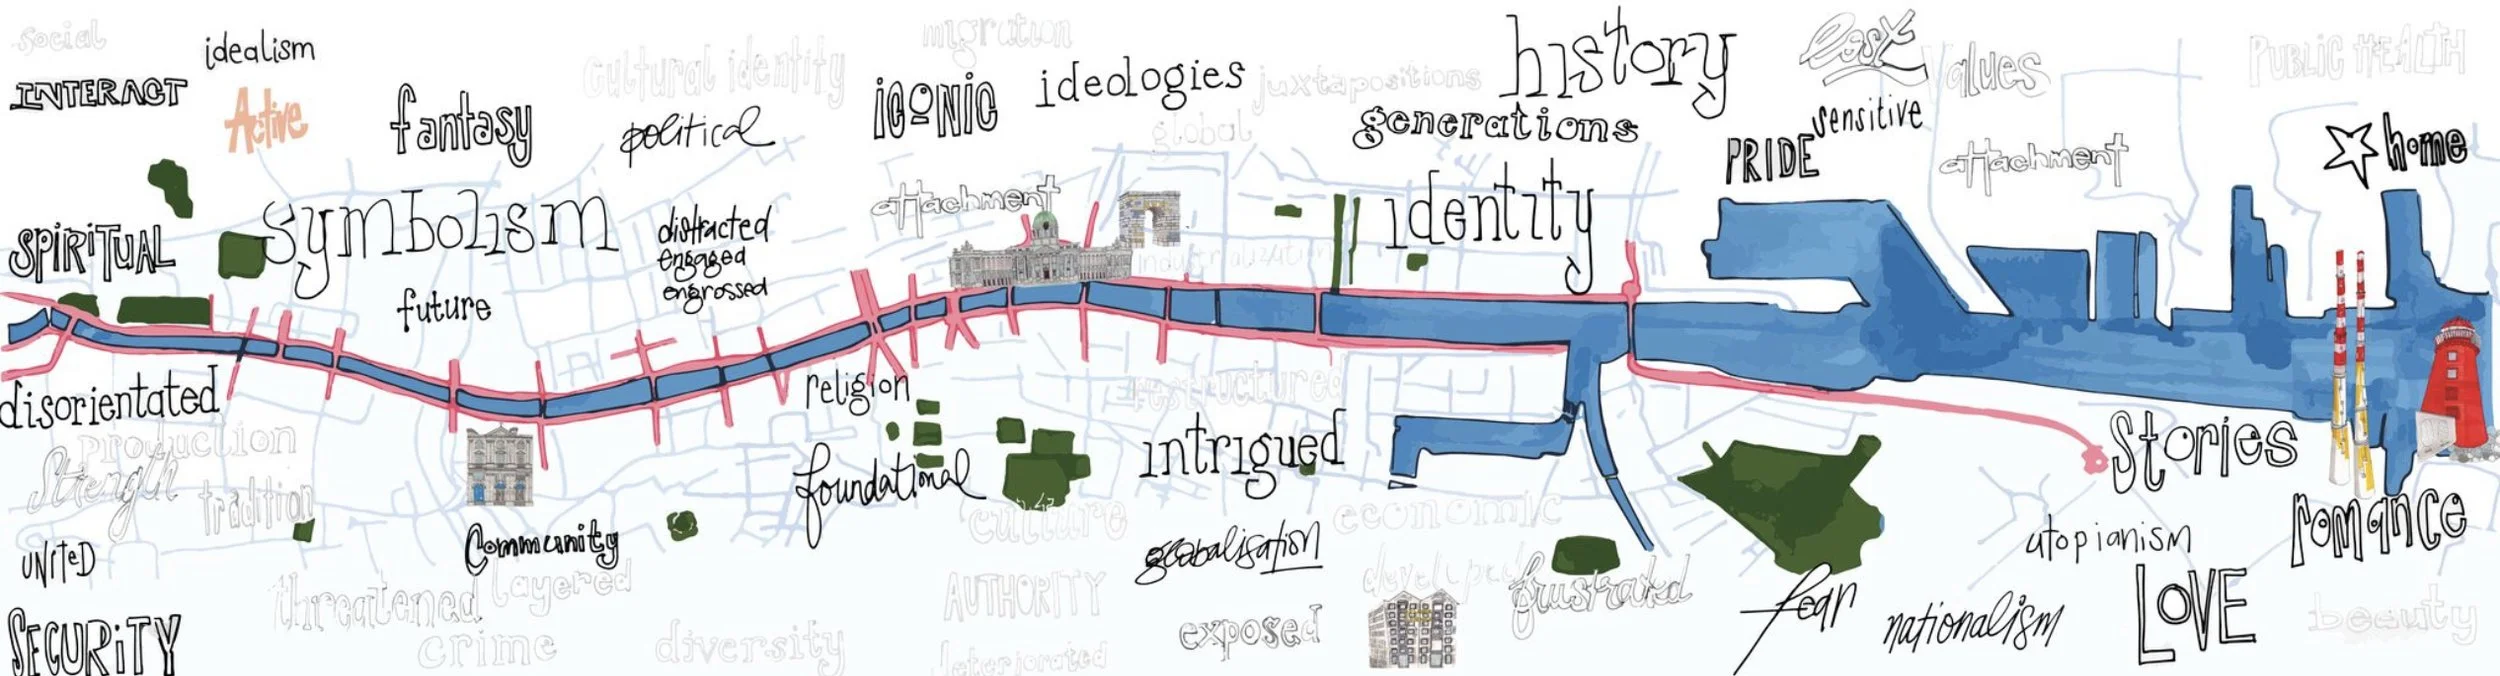 social
idealism
INTERACT
Active
fantasy
cultural identity
political
migration
iconic
ideologies
juxtapositions
global
history
generations
lost
values
sensitive
PRIDE
attachment
PUBLIC HEALTH
home
SPIRITUAL
symbolism
future
distracted
engaged
engrossed
attachment
industrialization
identity
disorientated
production
strength
tradition
UNITED
SECURITY
Community
threatened
layered
crime
diversity
religion
foundational
culture
AUTHORITY
deteriorated
restructured
intrigued
globalisation
exposed
economic
developed
frustrated
fear
nationalism
Stories
utopianism
LOVE
romance
beauty